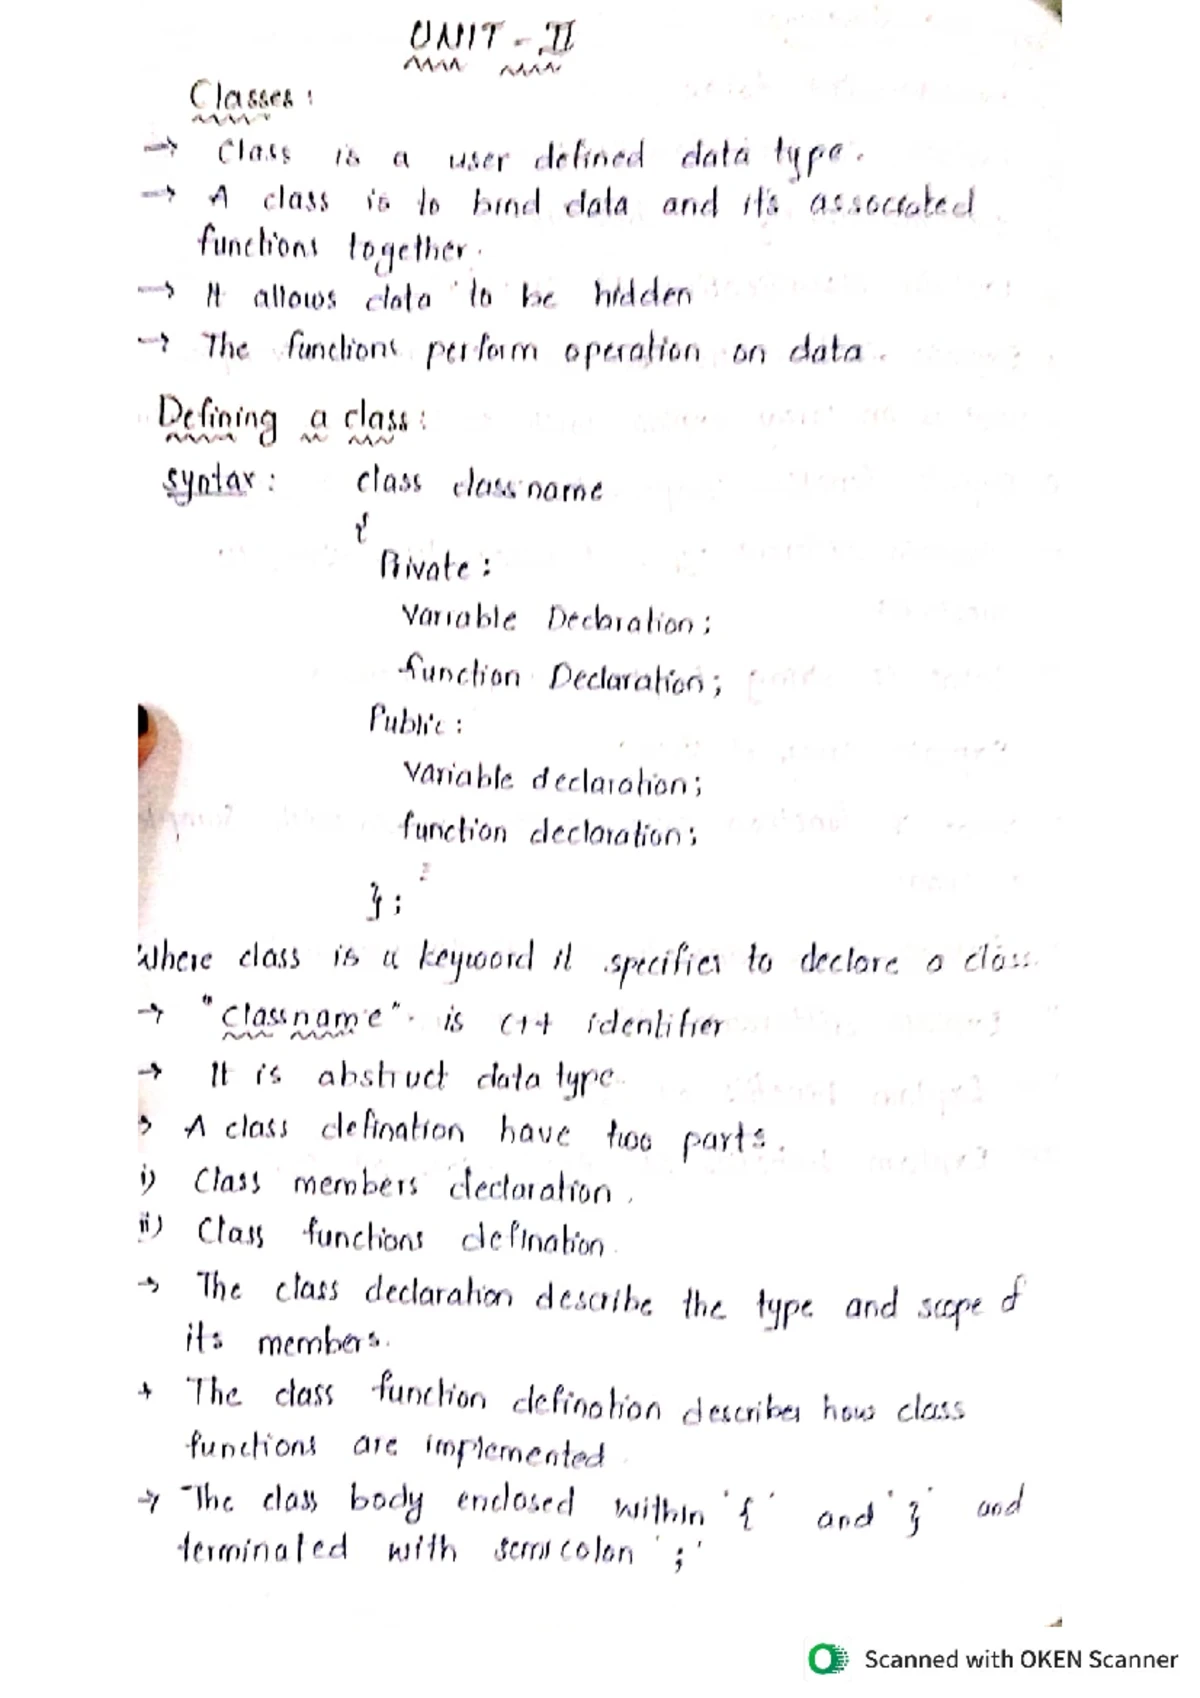 UNIT - II
Classes :
→ Class is a user defined data type.
→ A class is to bind data and it's associated
functions together.
→ It allows data to be hidden
→ The functions perform operation on data.
Defining a class :
syntax : class classname
{
Private :
Variable Declaration ;
function Declaration ;
Public :
Variable declaration ;
function declaration ;
} ;
Where class is a keyword it specifies to declare a class.
→ "classname" is C++ identifier
→ It is abstruct data type.
→ A class defination have two parts.
i) Class members declaration.
ii) Class functions defination.
→ The class declaration describe the type and scope of
its members.
→ The class function defination describes how class
functions are implemented.
→ The class body enclosed within '{' and '}' and
terminated with semicolon ';'
Scanned with OKEN Scanner